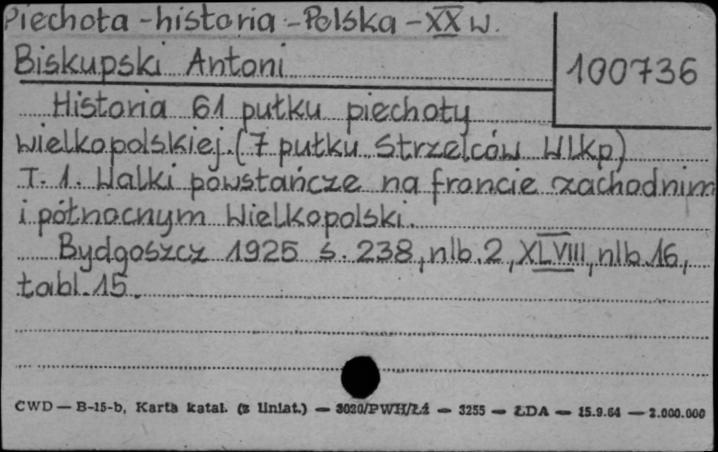 Piechota - historia - Polska - XX w.
Biskupski Antoni
100736
Historia 61 pułku piechoty
wielkopolskiej. (7 pułku Strzelców Wlkp)
T. 1. Walki powstańcze na froncie zachodnim
i północnym Wielkopolski.
Bydgoszcz 1925 s. 238, nlb. 2, XLVIII, nlb. 16,
tabl. 15.
CWD — B-15-b, Karta katal. (z liniat.) — 3020/PWH/Łd — 3255 — ŁDA — 15.9.64 — 2.000.000